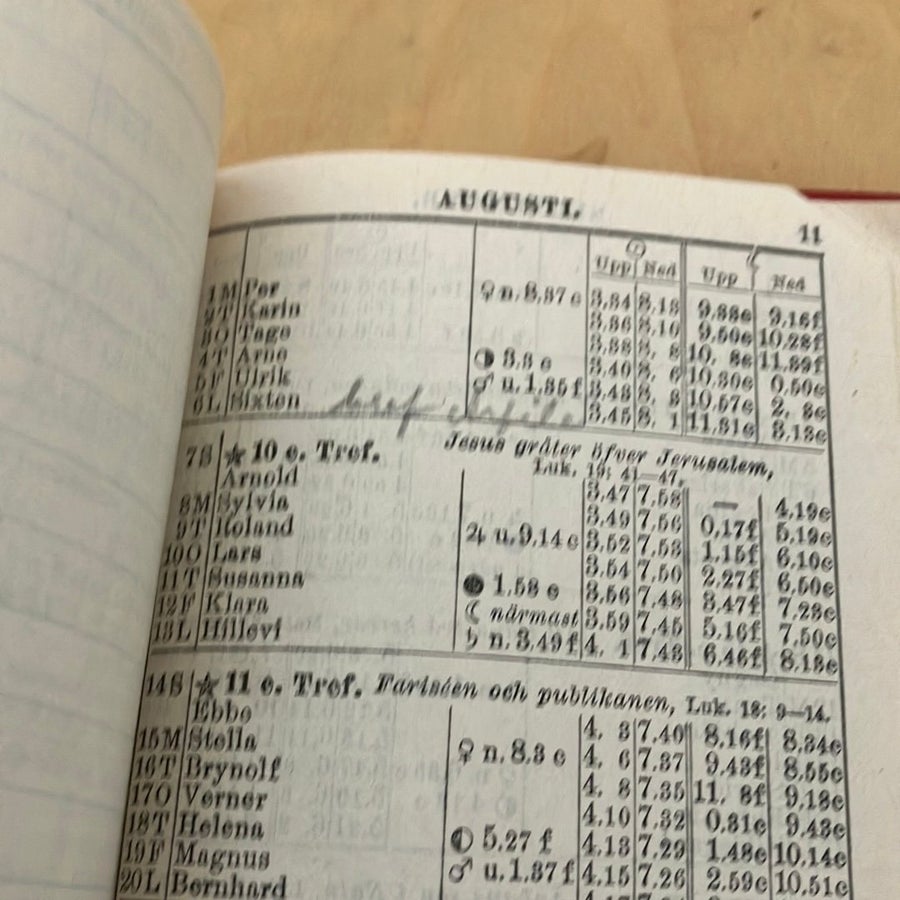 AUGUSTI.
11
Upp Ned Upp Ned
1 M Per ♀ n. 8,37 e 3,34 8,13 9,38e 9,16f
2 T Karin 3,36 8,10 9,50e 10,28f
3 O Tage 3,38 8, 8 10, 8e 11,39f
4 T Arne ◑ 3.3 e 3,40 8, 6 10,30e 0,50e
5 F Ulrik ♂ u. 1,35 f 3,43 8, 3 10,57e 2, 8e
6 L Sixten 3,45 8, 1 11,31e 3,13e
7 S ☆ 10 e. Tref. Jesus gråter öfver Jerusalem,
Luk. 19: 41—47.
Arnold 3,47 7,58 — 4,19e
8 M Sylvia 3,49 7,56 0,17f 5,19e
9 T Roland ♃ u. 9.14 e 3,52 7,53 1,15f 6,10e
10 O Lars 3,54 7,50 2,27f 6,50e
11 T Susanna ● 1.58 e 3,56 7,48 3,47f 7,23e
12 F Klara ☾ närmast 3,59 7,45 5,16f 7,50e
13 L Hillevi ♄ n. 3.49 f 4, 1 7,43 6,46f 8,13e
14 S ☆ 11 e. Tref. Fariséen och publikanen, Luk. 18: 9—14.
Ebbe 4, 3 7,40 8,16f 8,34e
15 M Stella ♀ n. 8.3 e 4, 6 7,37 9,43f 8,55e
16 T Brynolf 4, 8 7,35 11, 8f 9,18e
17 O Verner 4,10 7,32 0,31e 9,43e
18 T Helena ◐ 5.27 f 4,13 7,29 1,48e 10,14e
19 F Magnus ♂ u. 1.37 f 4,15 7,26 2,59e 10,51e
20 L Bernhard